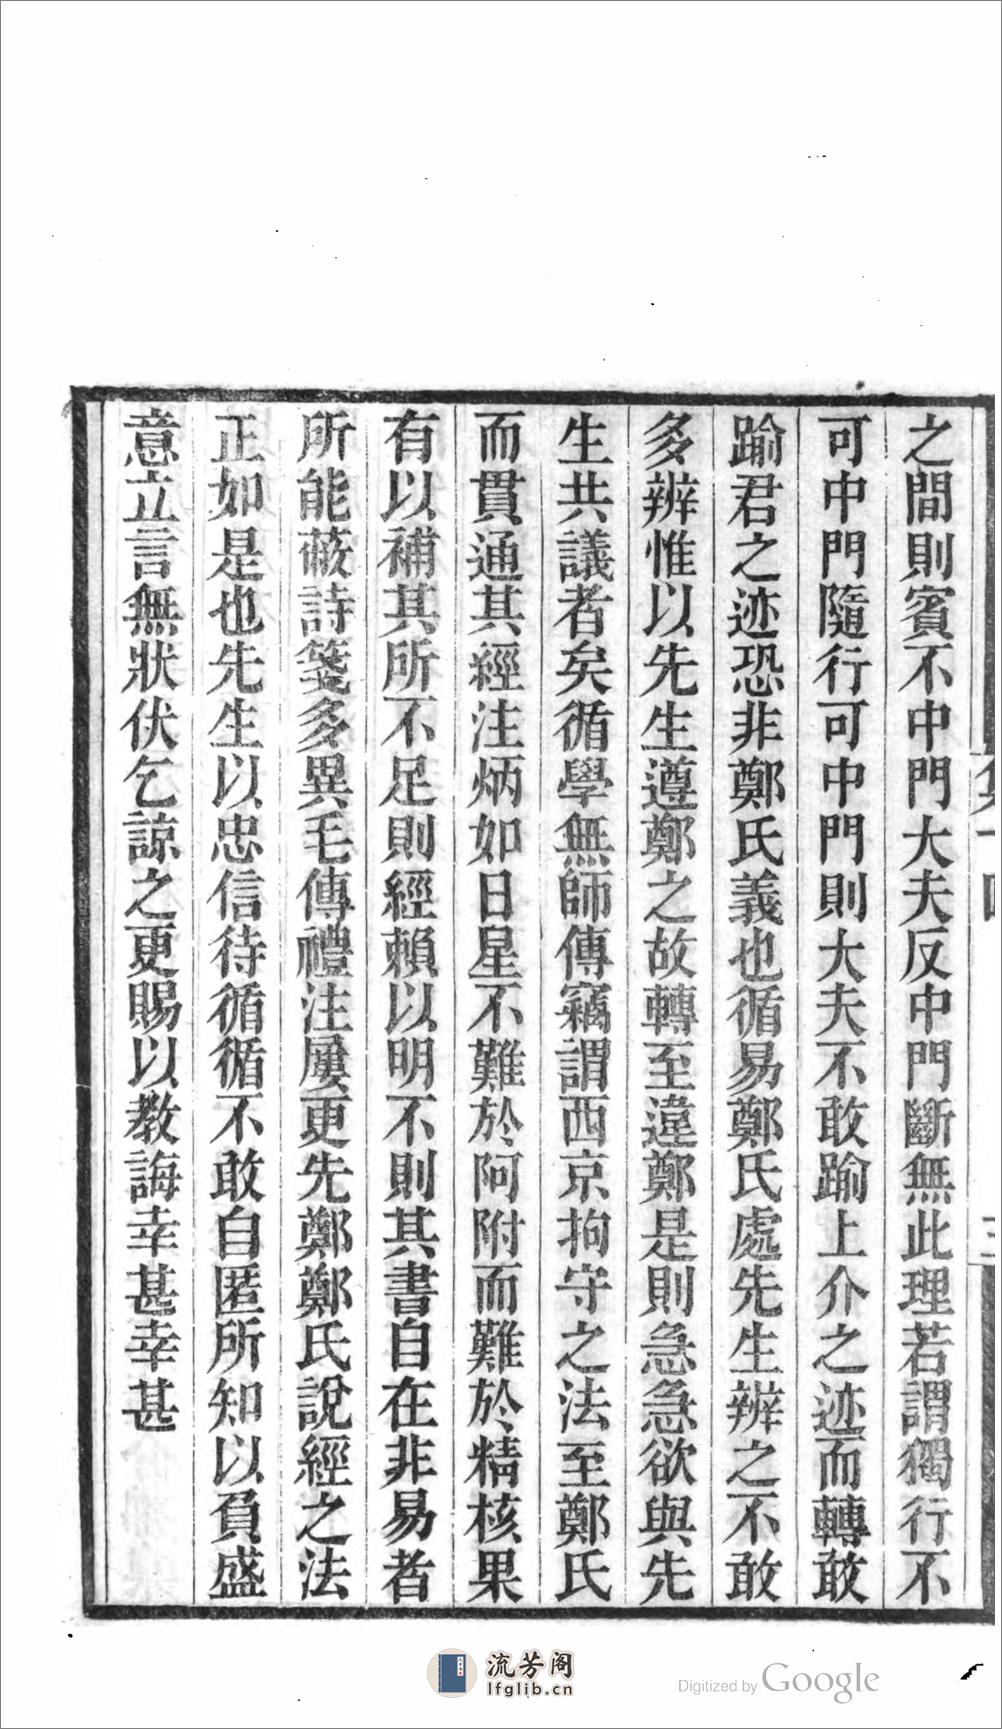 之間則賓不中門大夫反中門斷無此理若謂獨行不
可中門隨行可中門則大夫不敢踰上介之迹而轉敢
踰君之迹恐非鄭氏義也循易鄭氏處先生辨之不敢
多辨惟以先生遵鄭之故轉至違鄭是則急急欲與先
生共議者矣循學無師傳竊謂西京拘守之法至鄭氏
而貫通其經注炳如日星不難於阿附而難於精核果
有以補其所不足則經賴以明不則其書自在非易者
所能蔽詩箋多異毛傳禮注屢更先鄭鄭氏說經之法
正如是也先生以忠信待循循不敢自匿所知以負盛
意立言無狀伏乞諒之更賜以教誨幸甚幸甚
流芳阁
lfglib.cn
Digitized by Google